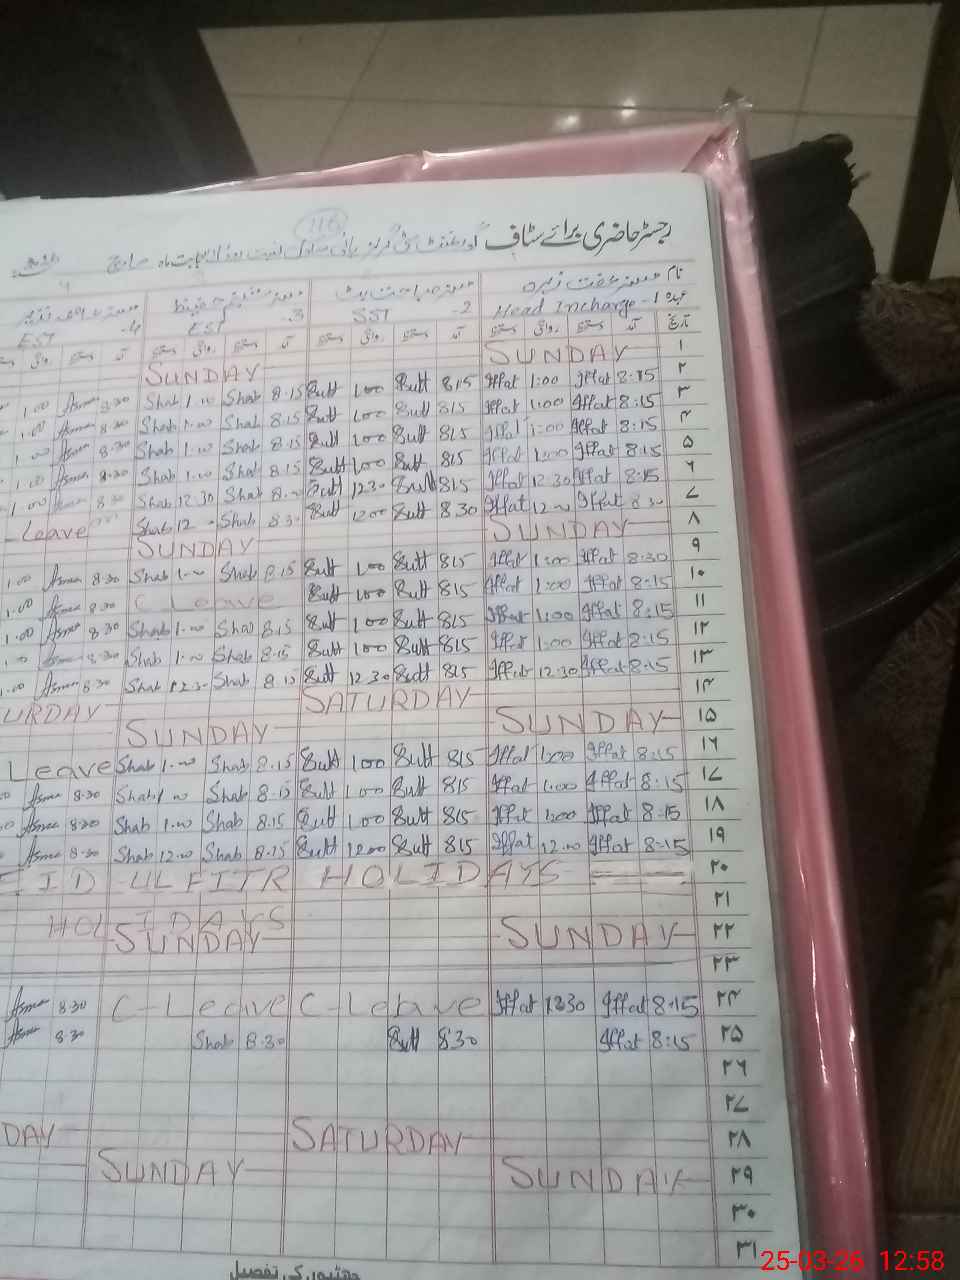 116
رجسٹر حاضری برائے سٹاف گورنمنٹ سٹی گرلز ہائی بابت ماہ مارچ
نام مسز عفت زہرہ مسز صباحت بٹ مسز
عہدہ 1- Head Incharge 2- SST 3- EST 4- EST
تاریخ آمد دستخط روانگی دستخط آمد دستخط روانگی دستخط آمد دستخط روانگی دستخط آمد دستخط روانگی
۱ SUNDAY SUNDAY
۲ 8:15 Iffat 1:00 Iffat 815 Butt 1.00 Butt 8.15 Shab 1.00 Shab 8.30 Asma 1.00
۳ 8:15 Iffat 1:00 Iffat 815 Butt 1.00 Butt 8.15 Shab 1.00 Shab 8.30 Asma 1.00
۴ 8:15 Iffat 1:00 Iffat 815 Butt 1.00 Butt 8.15 Shab 1.00 Shab 8.30 Asma 1.00
۵ 8:15 Iffat 1:00 Iffat 815 Butt 1.00 Butt 8.15 Shab 1.00 Shab 8.30 Asma 1.00
۶ 8:15 Iffat 12.30 Iffat 815 Butt 12.30 Butt 8.00 Shab 12.30 Shab 8.30 Asma 1.00
۷ 8.30 Iffat 12.00 Iffat 8.30 Butt 12.00 Butt 8.30 Shab 12 Shab Leave
۸ SUNDAY SUNDAY
۹ 8:30 Iffat 1:00 Iffat 815 Butt 1.00 Butt 8.15 Shab 1.00 Shab 8.30 Asma 1.00
۱۰ 8:15 Iffat 1:00 Iffat 815 Butt 1.00 Butt C Leave 8.30 Asma 1.00
۱۱ 8:15 Iffat 1:00 Iffat 815 Butt 1.00 Butt 8.15 Shab 1.00 Shab 8.30 Asma 1.00
۱۲ 8:15 Iffat 1:00 Iffat 815 Butt 1.00 Butt 8.15 Shab 1.00 Shab 8.30 Asma 1.00
۱۳ 8:15 Iffat 12.30 Iffat 815 Butt 12.30 Butt 8.15 Shab 12.30 Shab 8.30 Asma 1.00
۱۴ SATURDAY URDAY
۱۵ SUNDAY SUNDAY
۱۶ 8:15 Iffat 1:00 Iffat 815 Butt 1.00 Butt 8.15 Shab 1.00 Shab Leave
۱۷ 8:15 Iffat 1.00 Iffat 815 Butt 1.00 Butt 8.15 Shab 1.00 Shab 8.30 Asma
۱۸ 8:15 Iffat 1:00 Iffat 815 Butt 1.00 Butt 8.15 Shab 1.00 Shab 8.30 Asma
۱۹ 8:15 Iffat 12.00 Iffat 815 Butt 12.00 Butt 8.15 Shab 12.00 Shab 8.30 Asma
۲۰ EID UL FITR HOLIDAYS
۲۱ HOLIDAYS
۲۲ SUNDAY SUNDAY
۲۳
۲۴ 8:15 Iffat 12.30 Iffat C-Leave C-Leave 8.30 Asma
۲۵ 8:15 Iffat 8.30 Butt 8.30 Shab 8.30 Asma
۲۶
۲۷
۲۸ SATURDAY DAY
۲۹ SUNDAY SUNDAY
۳۰
۳۱
چھٹیوں کی تفصیل
25-03-26 12:58